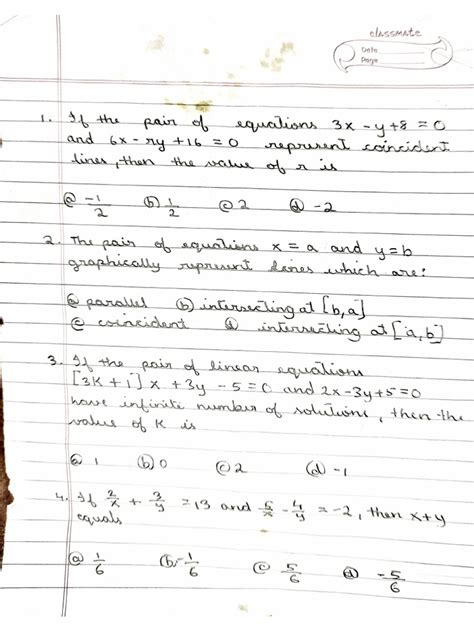 classmate
Date
Page
1. If the pair of equations 3x - y + 8 = 0
and 6x - ry + 16 = 0 represent coincident
lines, then the value of r is
(a) -1/2 (b) 1/2 (c) 2 (d) -2
2. The pair of equations x = a and y = b
graphically represent lines which are:
(a) parallel (b) intersecting at [b,a]
(c) coincident (d) intersecting at [a,b]
3. If the pair of linear equations
[3K + 1] x + 3y - 5 = 0 and 2x - 3y + 5 = 0
have infinite number of solutions, then the
value of K is
(a) 1 (b) 0 (c) 2 (d) -1
4. If 2/x + 3/y = 13 and 5/x - 4/y = -2, then x+y
equals
(a) 1/6 (b) -1/6 (c) 5/6 (d) -5/6